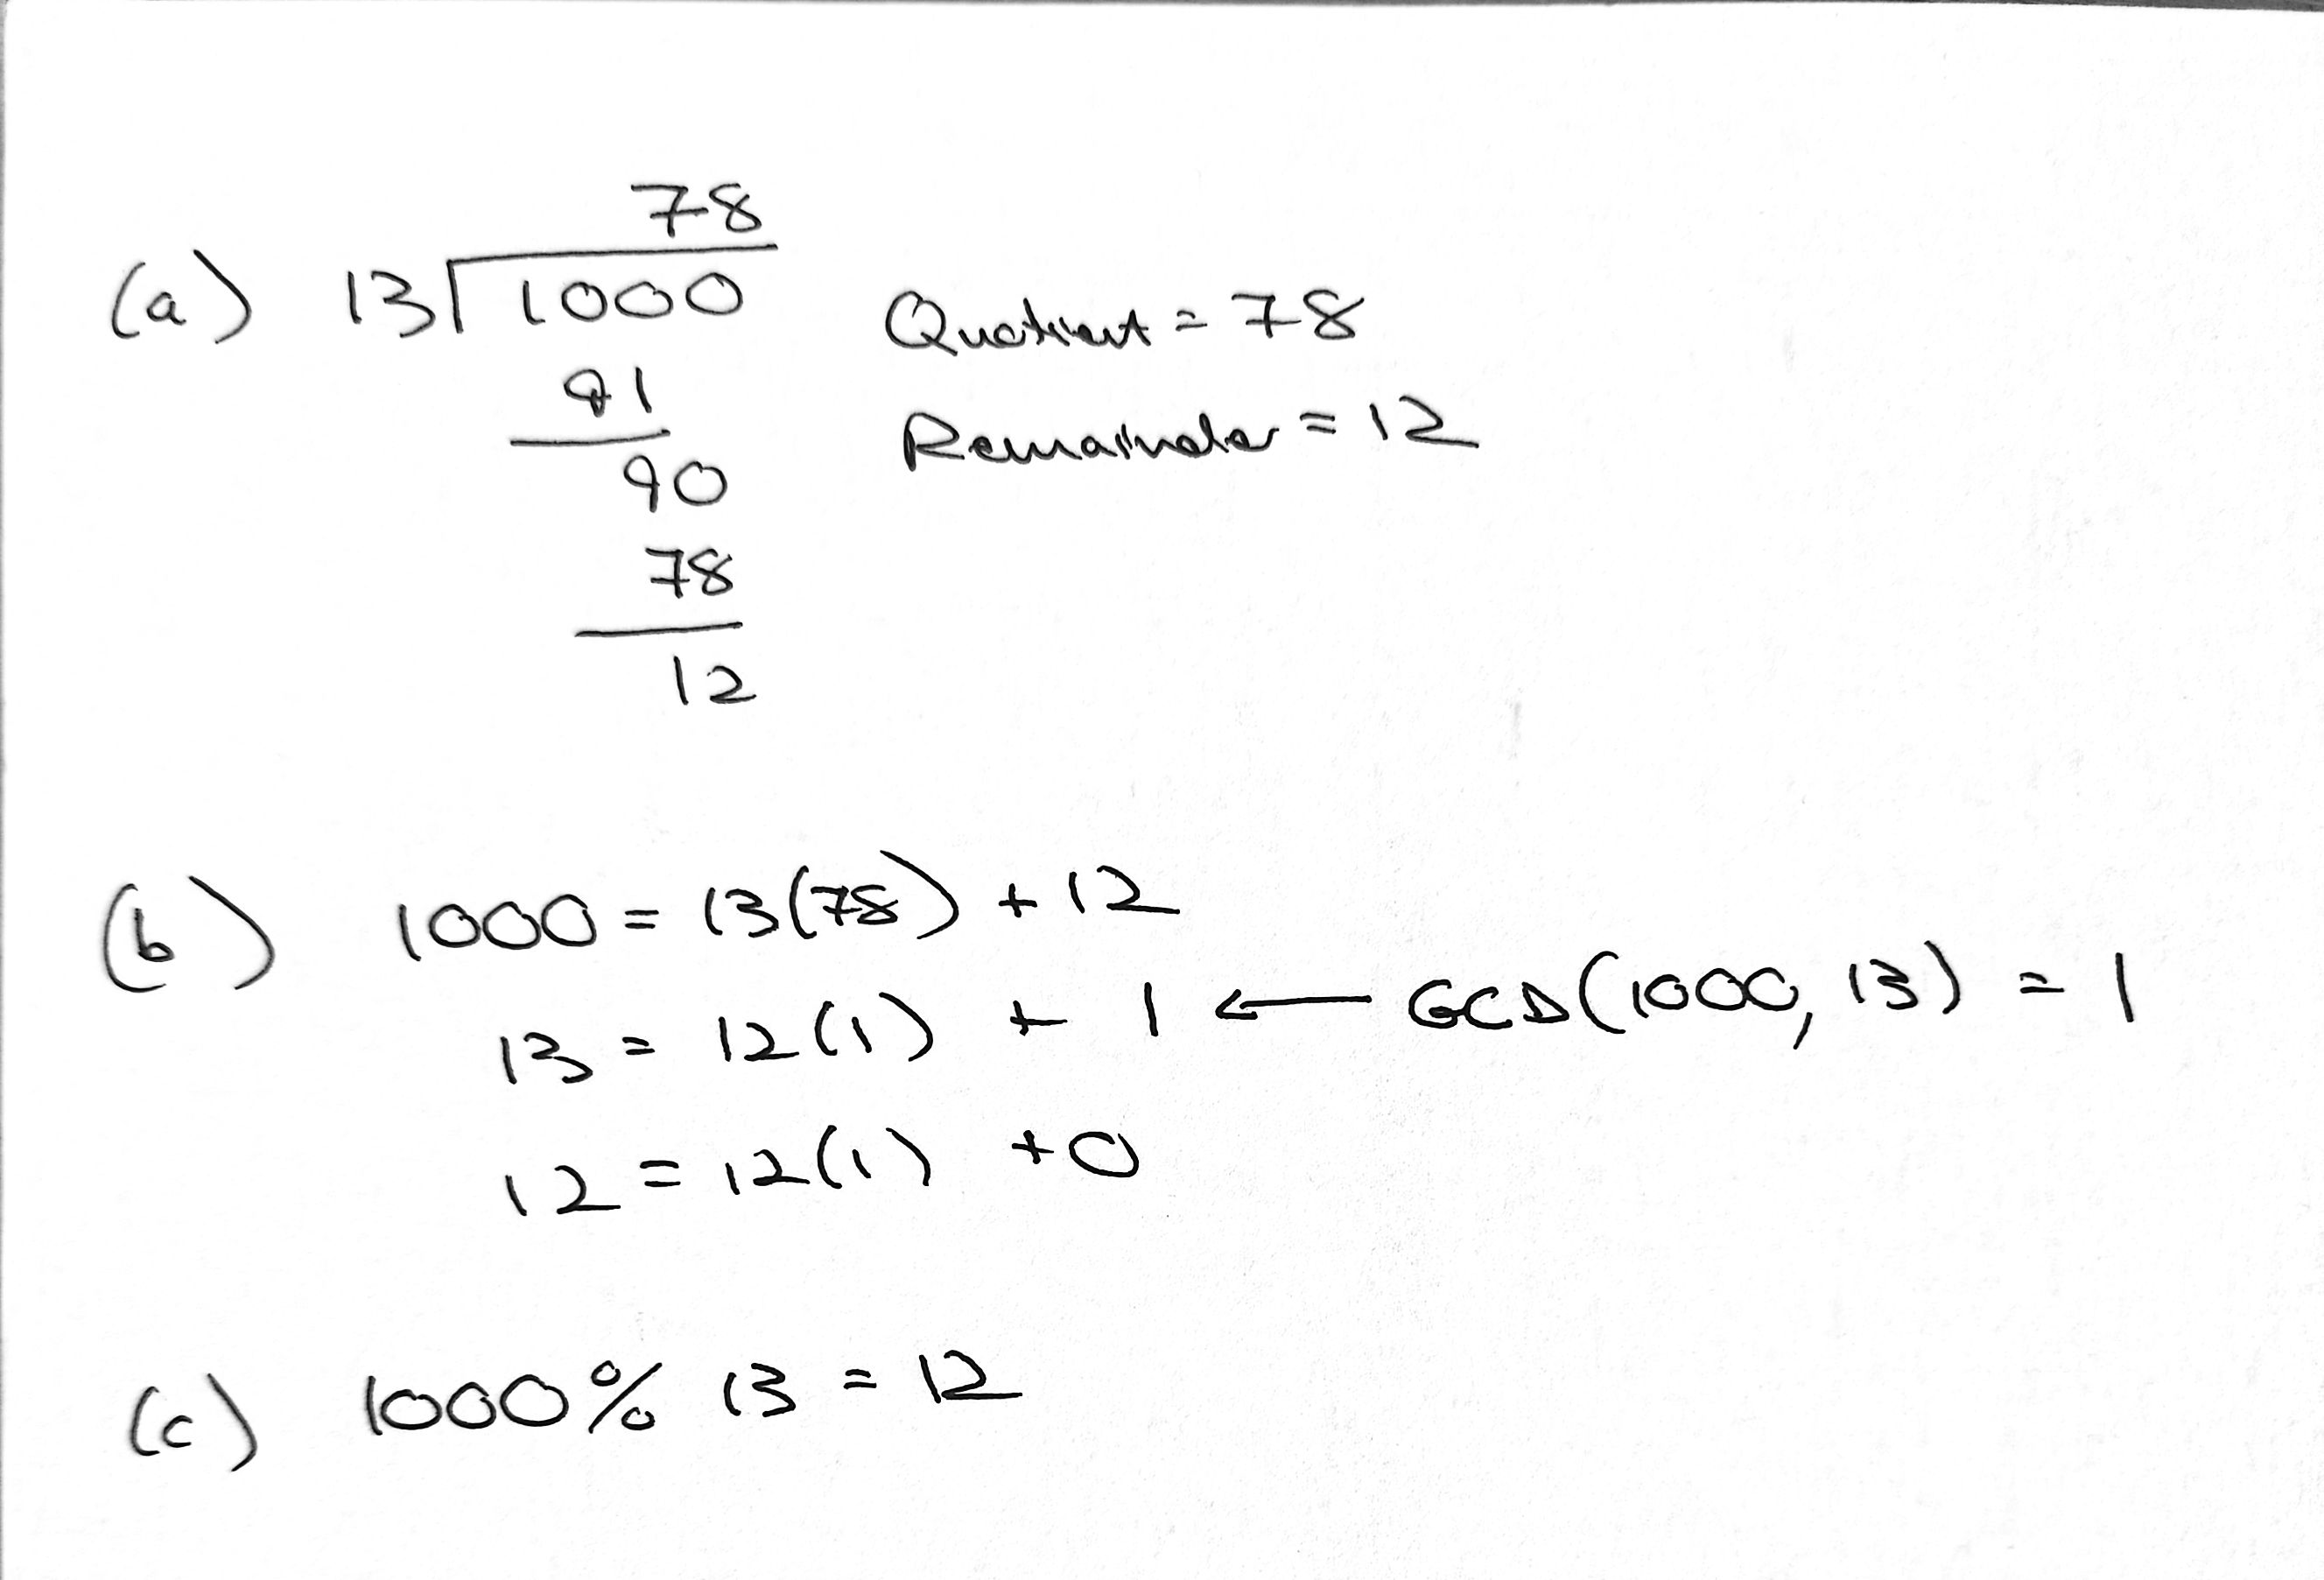 78
(a) 13 1000
91
90
78
12
Quotient = 78
Remainder = 12
(b) 1000 = 13(78) + 12
13 = 12(1) + 1 ← GCD(1000, 13) = 1
12 = 12(1) + 0
(c) 1000 % 13 = 12